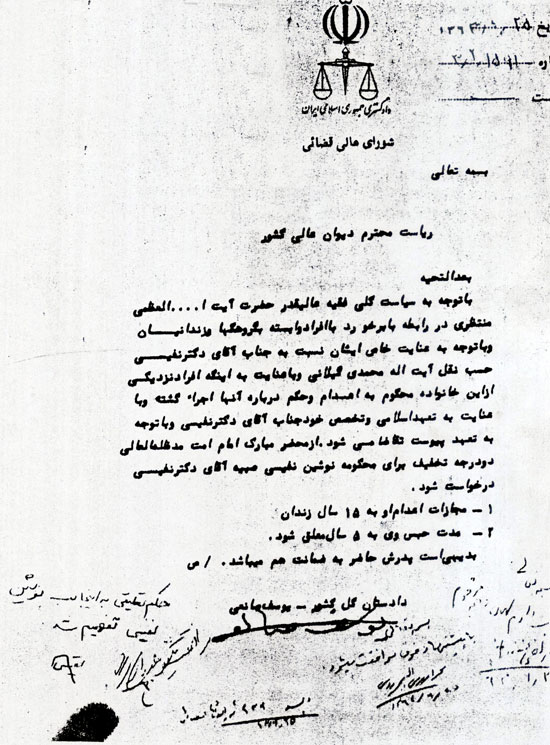 تاریخ ۱۳۶۴/۹/۲۵
دادگستری جمهوری اسلامی ایران
شورای عالی قضائی
بسمه تعالی
ریاست محترم دیوان عالی کشور
بعدالتحیه
باتوجه به سیاست کلی فقیه عالیقدر حضرت آیت ا....العظمی
منتظری در رابطه بابرخورد باافرادوابسته بگروهکها وزندانیان
وباتوجه به عنایت خاص ایشان نسبت به جناب آقای دکترنفیسی
حسب نقل آیت اله محمدی گیلانی وباعنایت به اینکه افرادنزدیکی
ازاین خانواده محکوم به اعدام وحکم درباره آنها اجراء گشته وبا
عنایت به تعهداسلامی وتخصص خودجناب آقای دکترنفیسی وباتوجه
به تعهد پیوست تقاضا می شود .ازمحضر مبارک امام امت مدظله‌العالی
دودرجه تخفیف برای محکومه نوشین نفیسی صبیه آقای دکترنفیسی
درخواست شود .
۱ - مجازات اعدام‌او به ۱۵ سال زندان
۲ - مدت حبس وی به ۵ سال‌معلق شود .
بدیهی‌است پدرش حاضر به ضمانت هم میباشد . / ص
دادستان کل کشور - یوسف صانعی
حکم تعلیقی به اینجانب نوشین
نفیسی تفهیم شد
با پیشنهاد فوق موافقت میشود